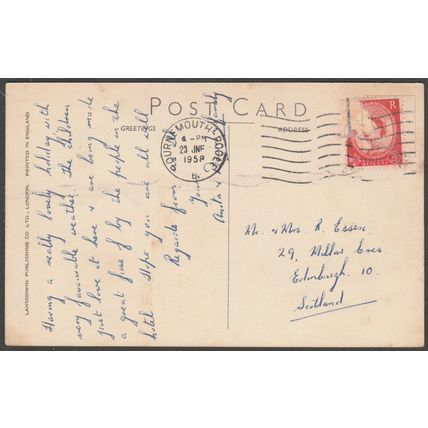 POST CARD
GREETINGS
ADDRESS
BOURNEMOUTH - POOLE
4 - PM
23 JNE
1958
R
Having a really lovely holiday with
very favourable weather. The children
just love it here & are being made
a great fuss of by the people in the
hotel. Hope you are all well
Regards from
Yours
Anita & family
Mr. & Mrs. R. Essex
29, Millar Cres.
Edinburgh. 10.
Scotland
LANSDOWNE PUBLISHING CO. LTD., LONDON. PRINTED IN ENGLAND